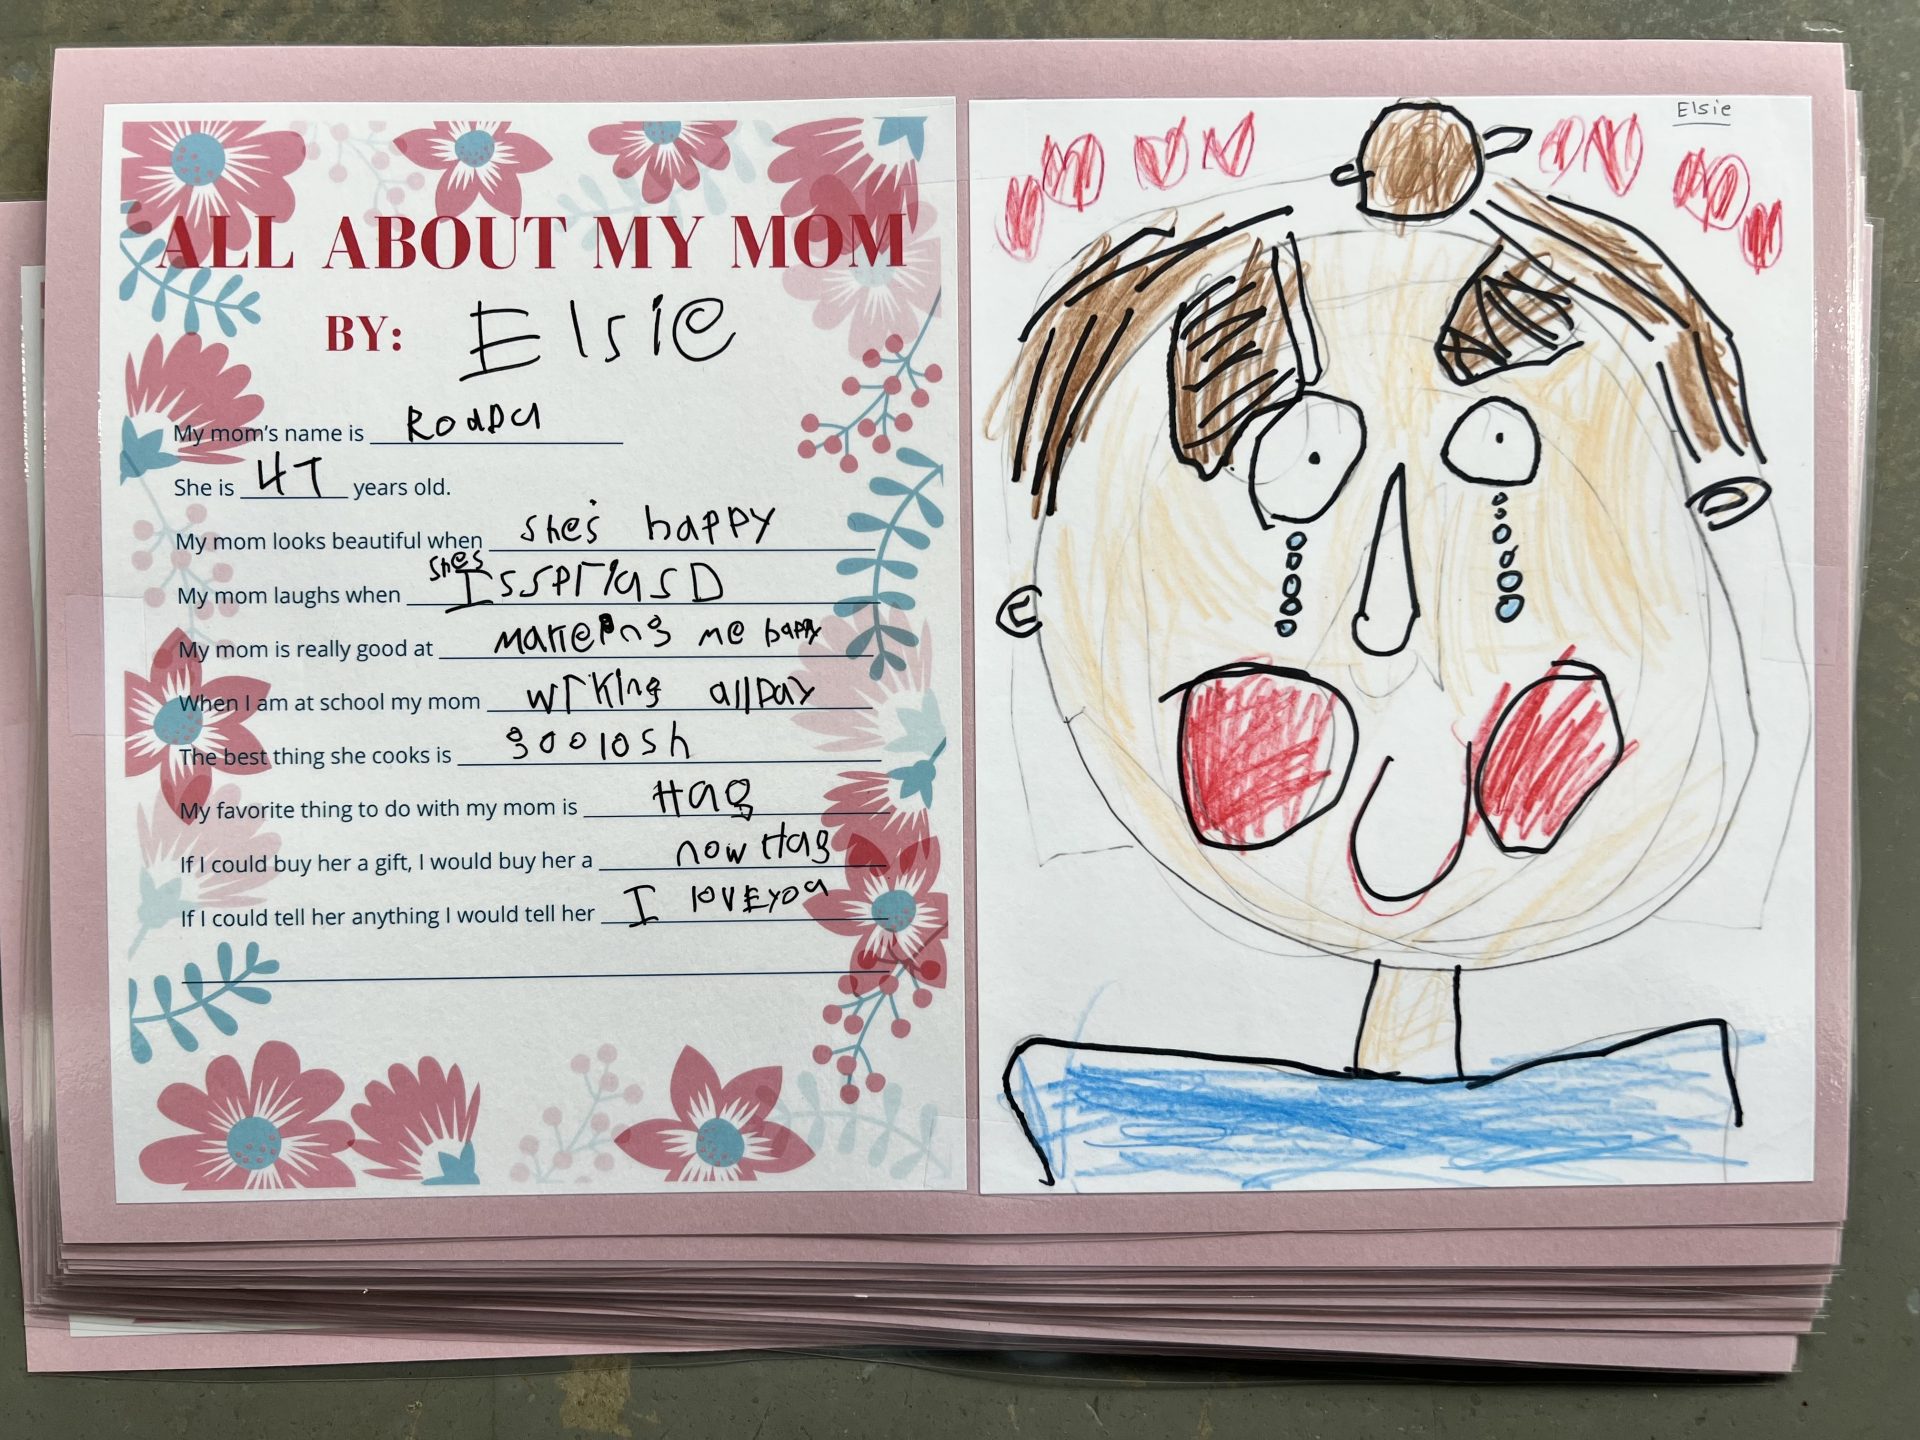 ALL ABOUT MY MOM
BY: Elsie
My mom's name is Roapa
She is 47 years old.
My mom looks beautiful when she's happy
My mom laughs when shes Is spriasD
My mom is really good at makeing me happy
When I am at school my mom wrking allDay
The best thing she cooks is goolosh
My favorite thing to do with my mom is Hag
If I could buy her a gift, I would buy her a now Hag
If I could tell her anything I would tell her I lovEyou
Elsie